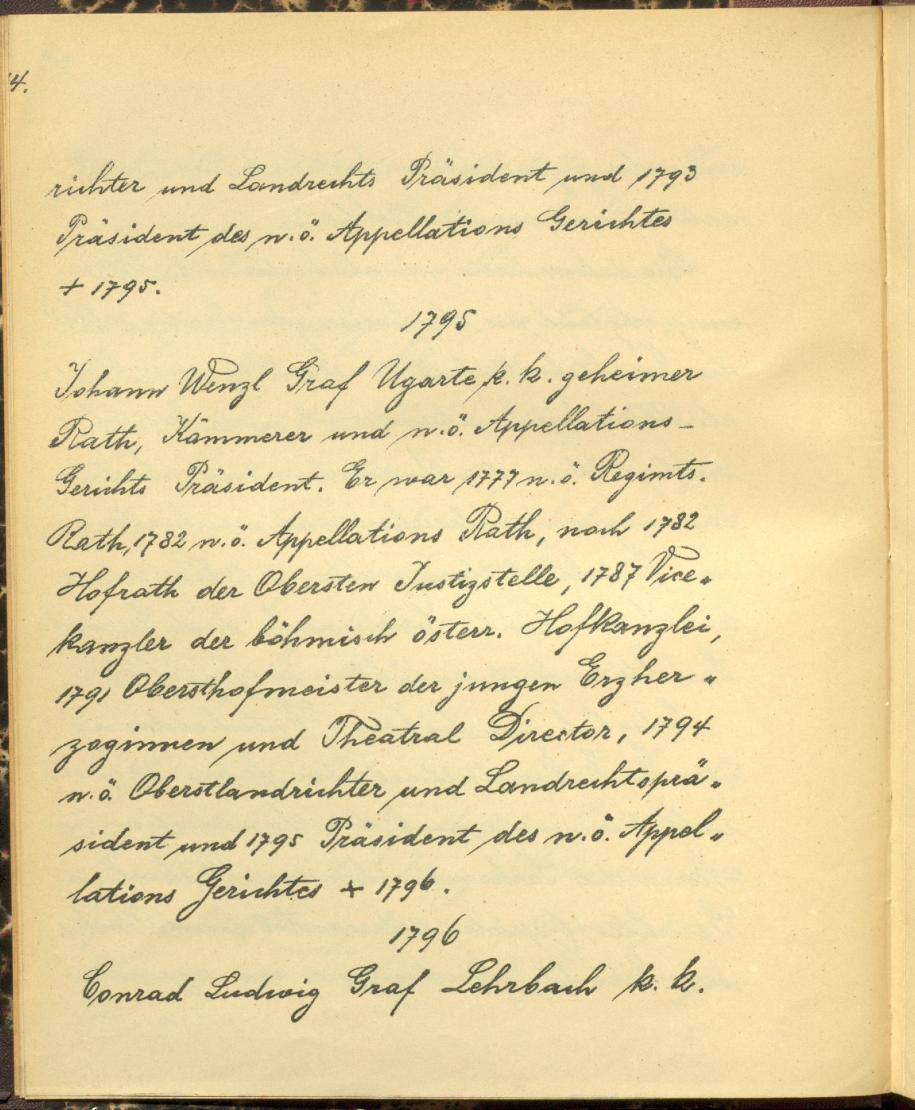 4.
richter und Landrechts Präsident und 1793
Präsident des n.ö. Appellations Gerichtes
+ 1795.
1795
Johann Wenzl Graf Ugarte k. k. geheimer
Rath, Kämmerer und n.ö. Appellations-
Gerichts Präsident. Er war 1777 n.ö. Regimts.
Rath, 1782 n.ö. Appellations Rath, noch 1782
Hofrath der Obersten Justizstelle, 1787 Vice„
kanzler der böhmisch österr. Hofkanzlei,
1791 Obersthofmeister der jungen Erzher„
zoginnen und Theatral Director, 1794
n.ö. Oberstlandrichter und Landrechtsprä„
sident und 1795 Präsident des n.ö. Appel„
lations Gerichtes + 1796.
1796
Conrad Ludwig Graf Lehrbach k. k.